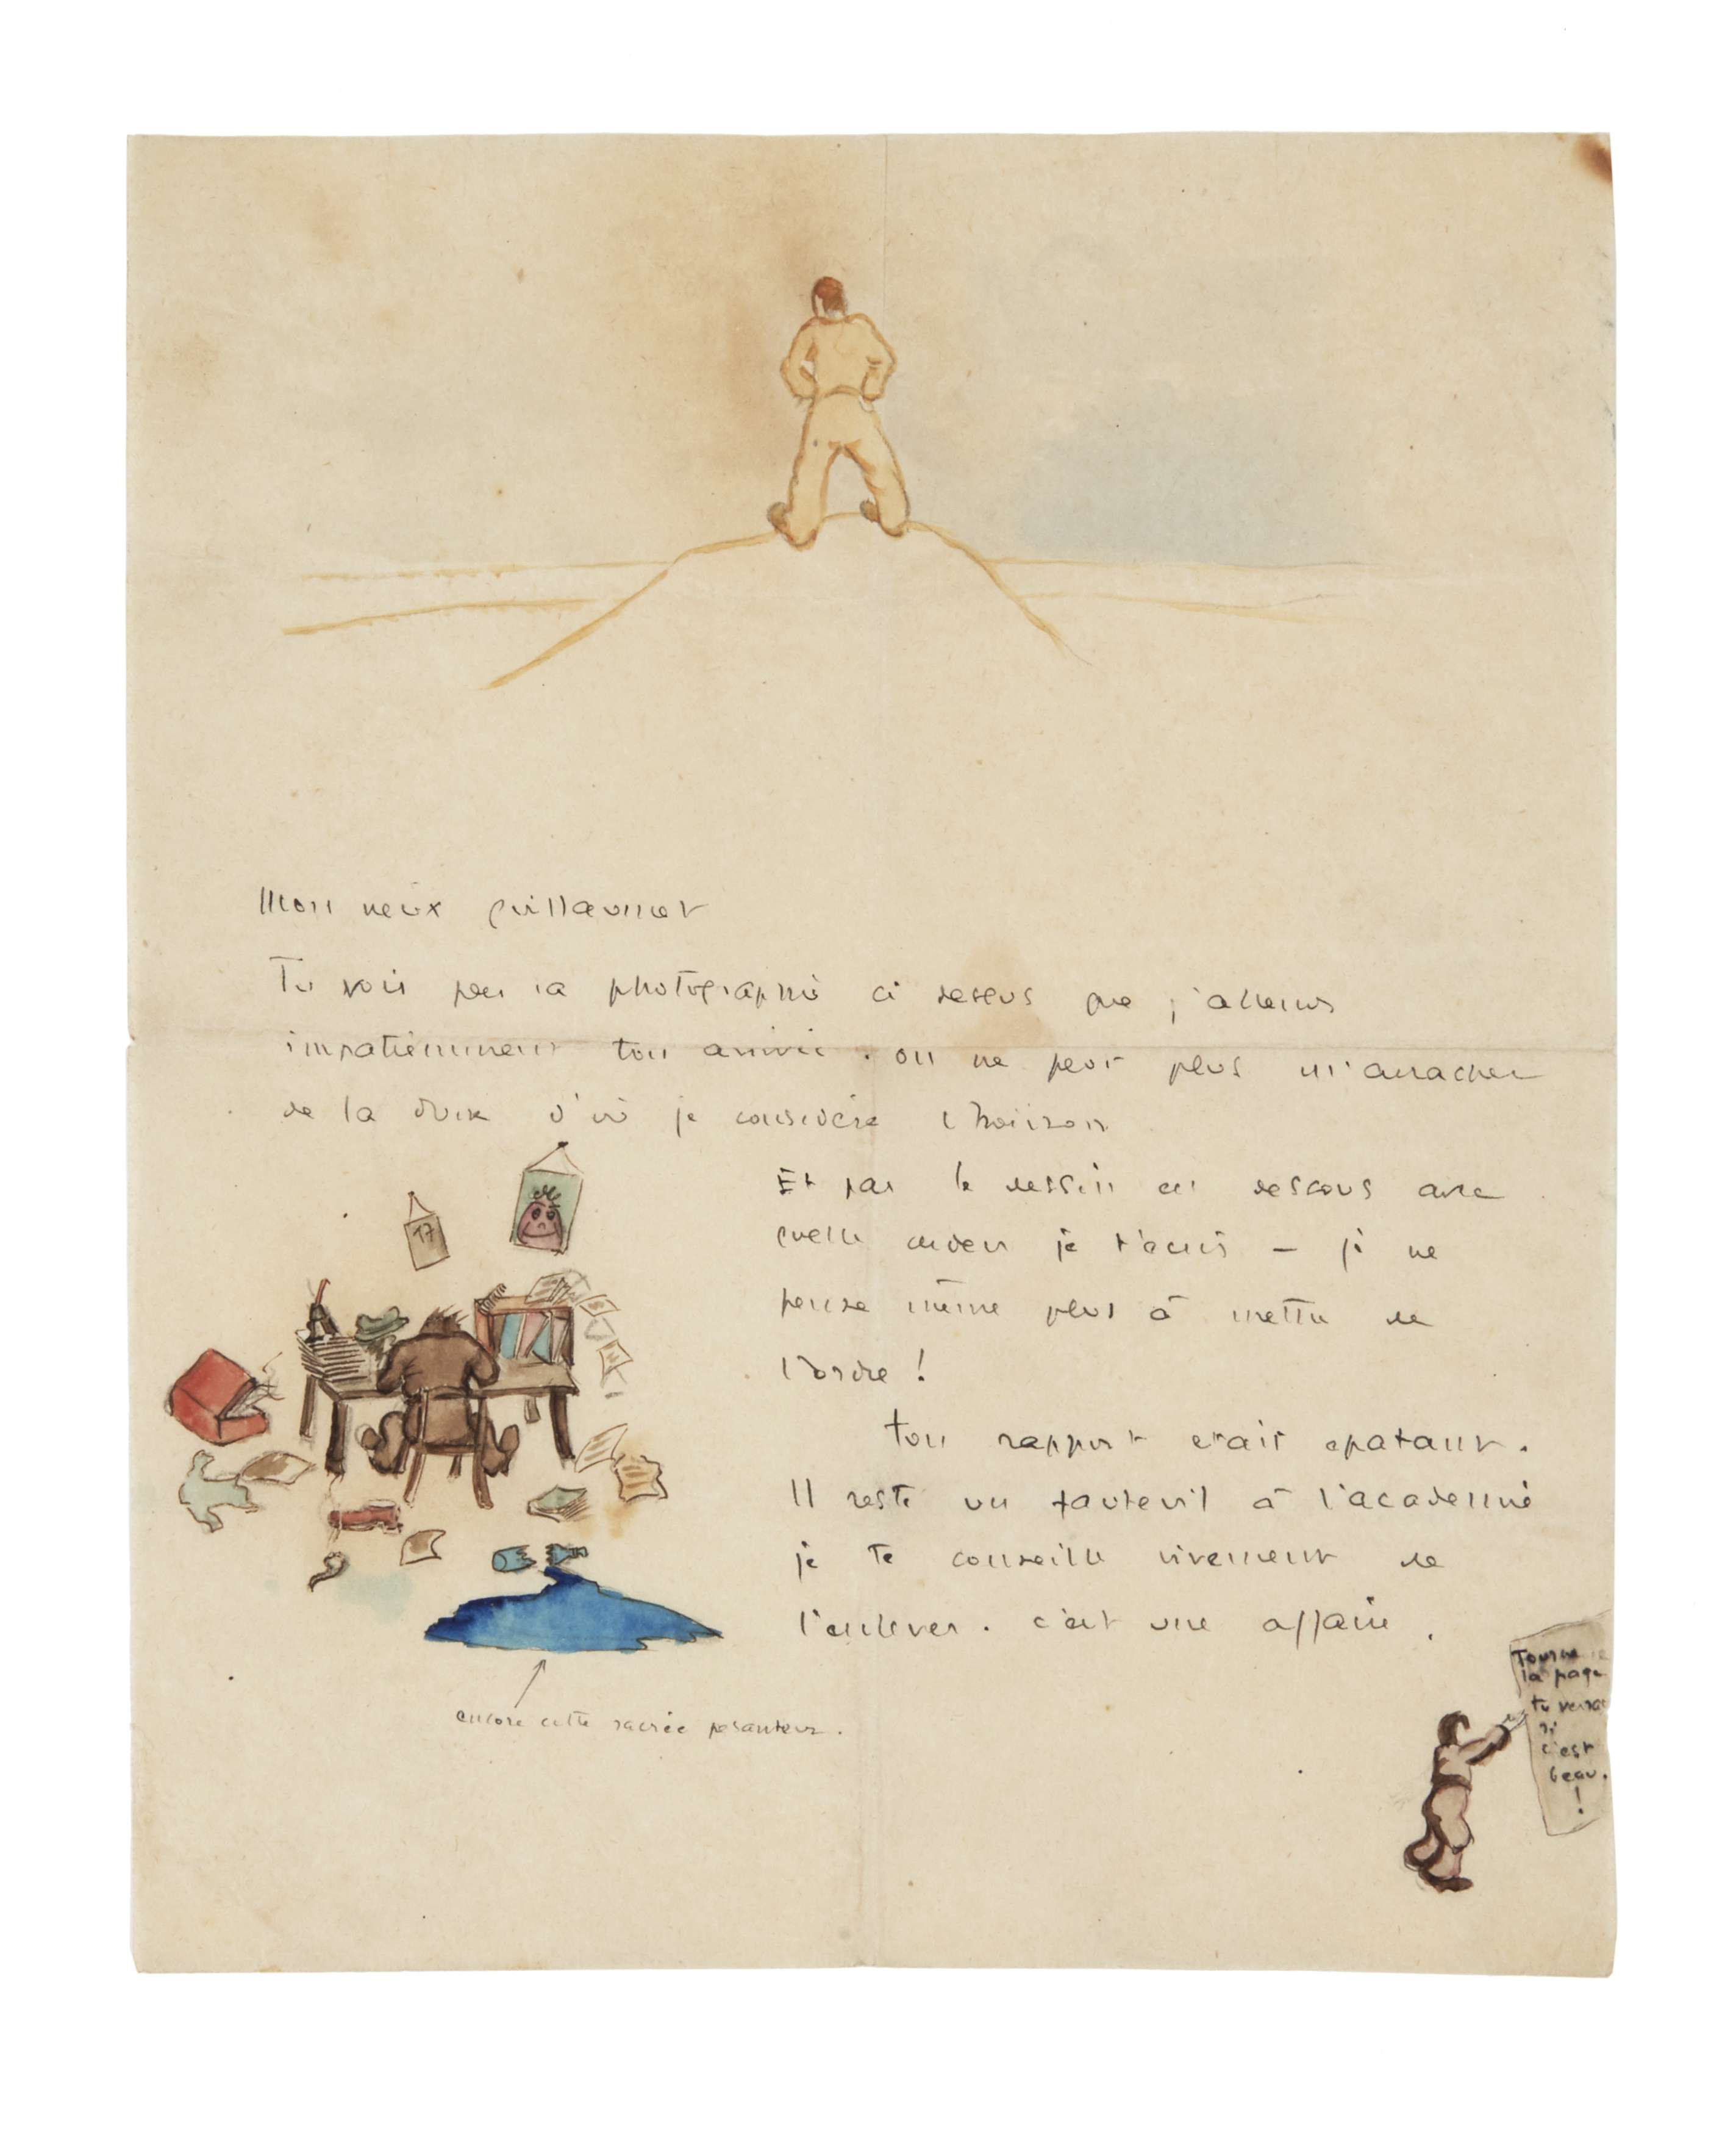 Mon vieux Guillaumet
Tu vois par la photographie ci dessus que j'attends
impatiemment ton arrivée. on ne peut plus m'arracher
de la dune d'où je considère l'horizon
17
Et par le dessin ci dessous avec
quelle ardeur je t'écris – je ne
pense même plus à mettre de
l'ordre !
ton rapport était épatant.
Il reste un fauteuil à l'académie
je te conseille vivement de
l'enlever. c'est une affaire.
encore cette sacrée pesanteur.
Tourne
la page
tu verras
si
c'est
beau.
!